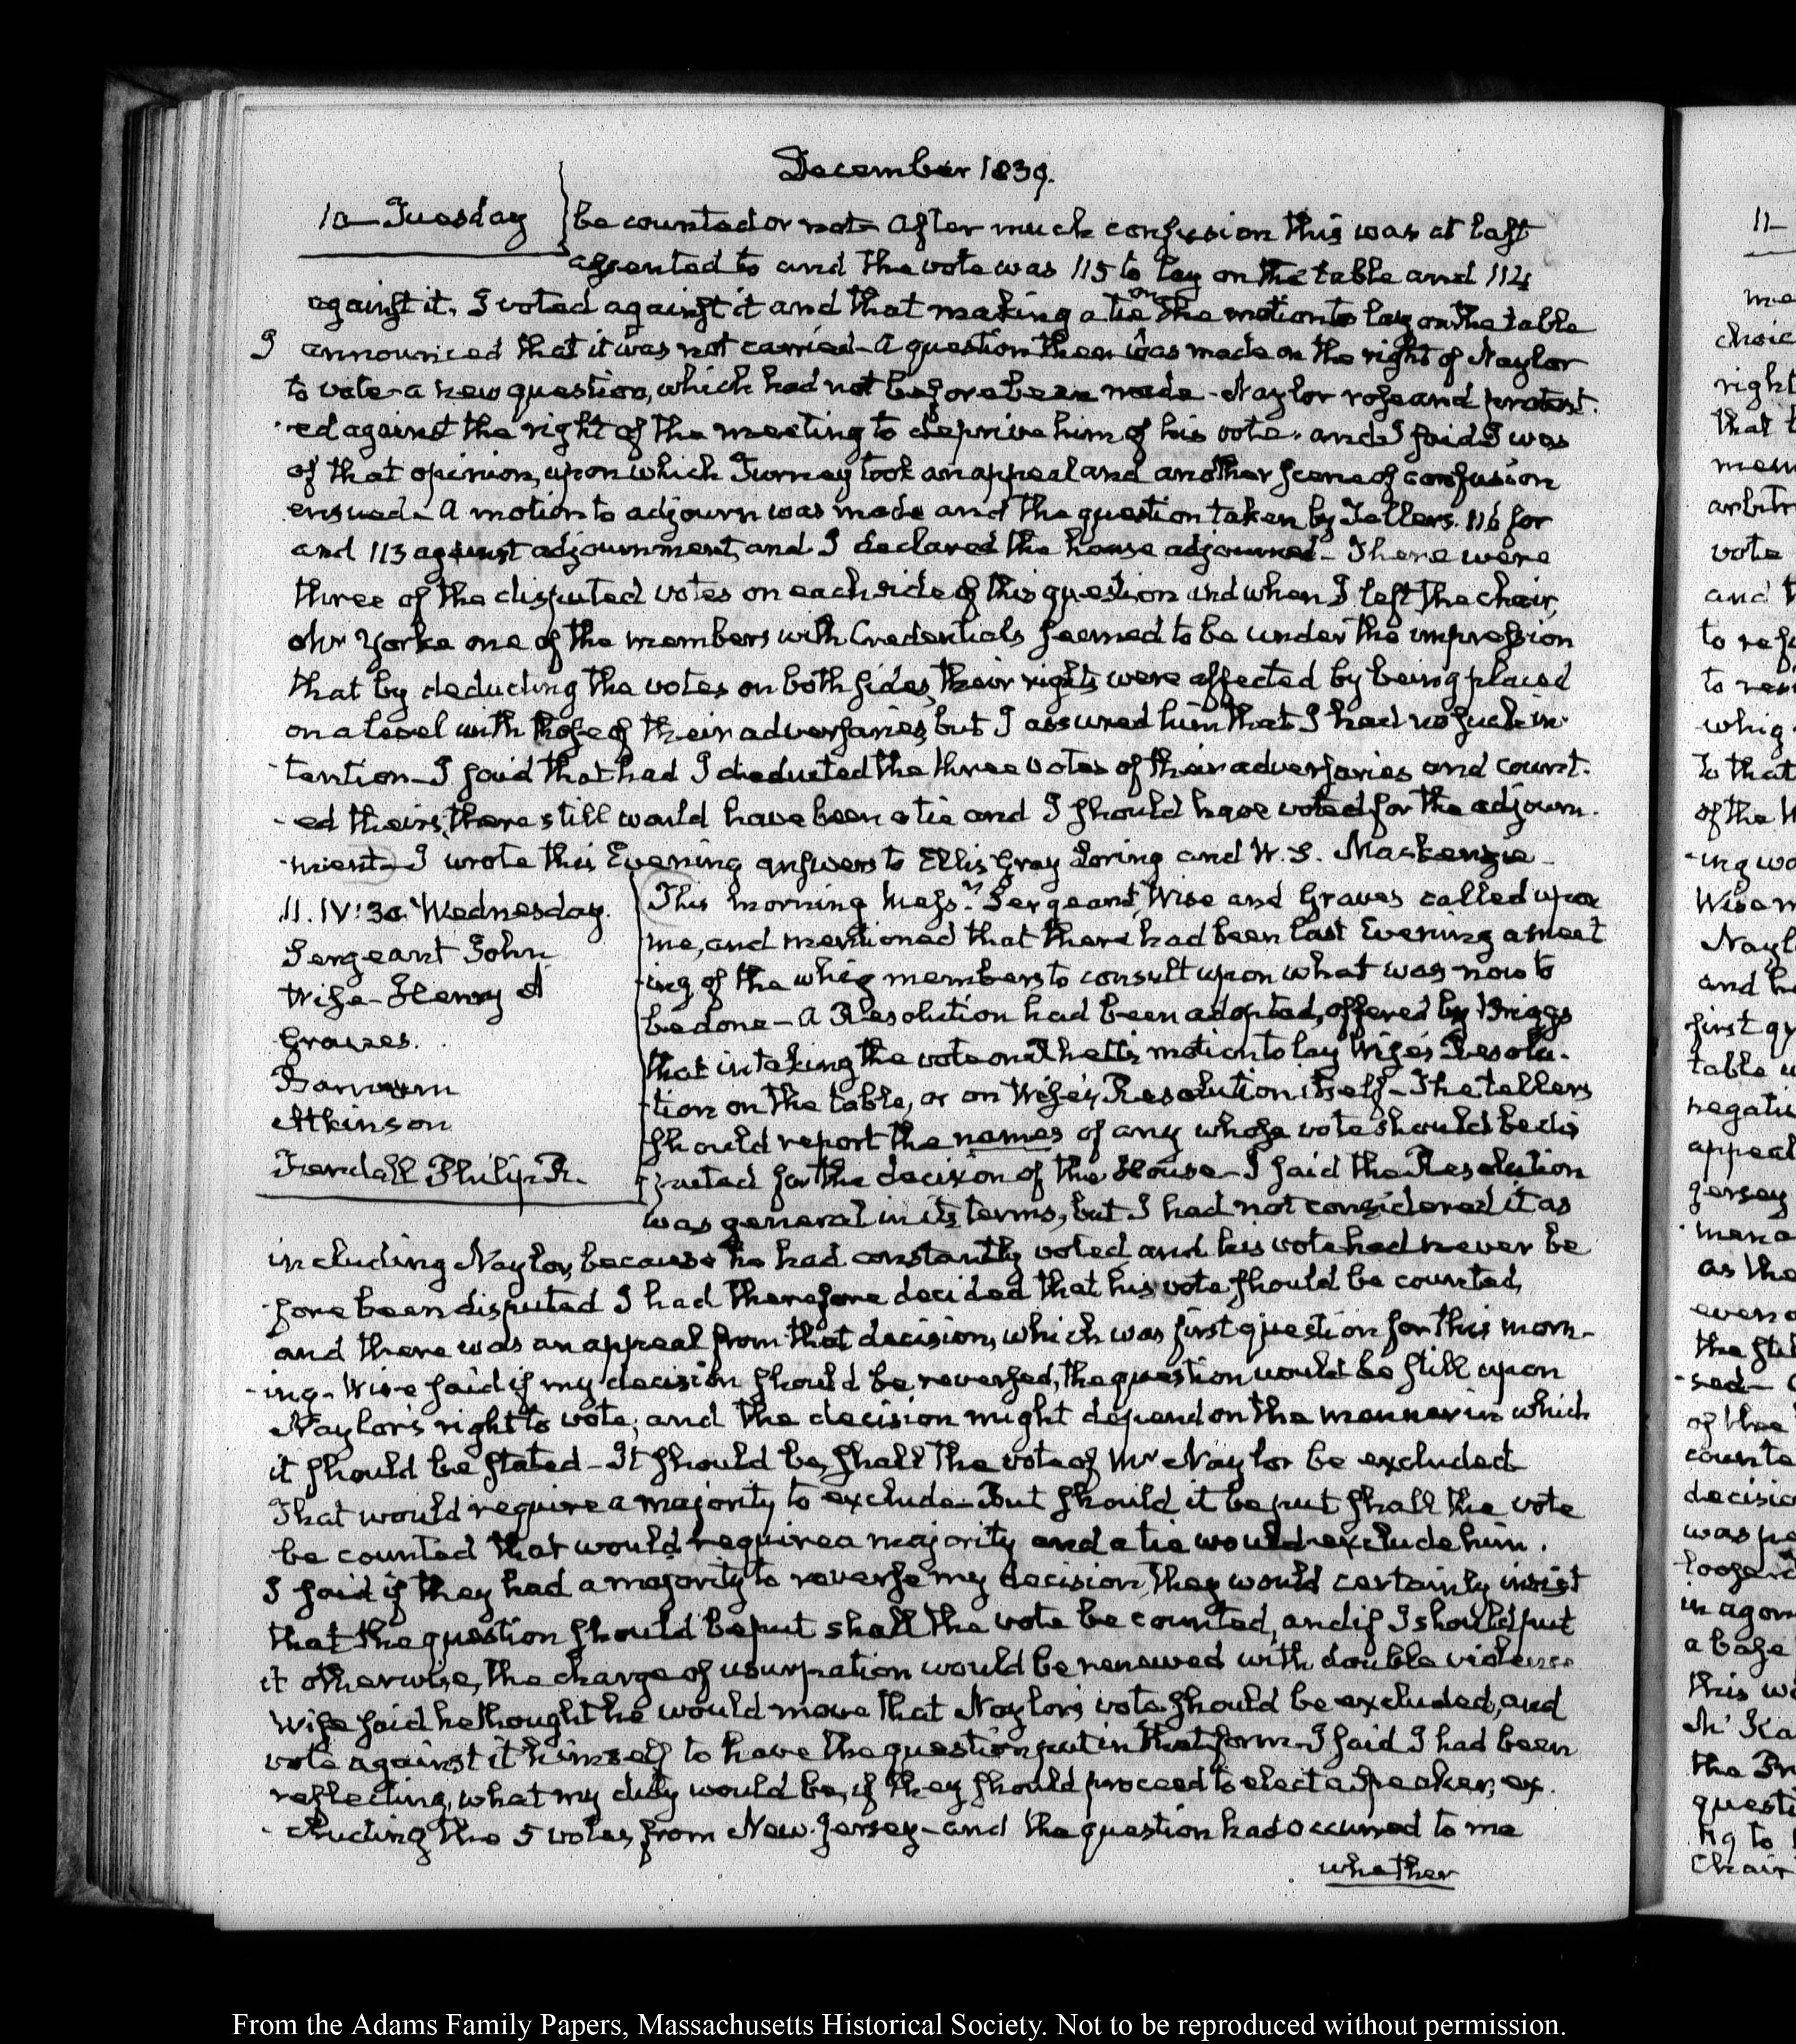 December 1839.
10 Tuesday
be counted or not. After much confusion this was at last
assented to and the vote was 115 to lay on the table and 114
against it. I voted against it and that making a tie on the motion to lay on the table
I announced that it was not carried – A question then was made on the right of Naylor
to vote – a new question, which had not before been made – Naylor rose and protest-
-ed against the right of the meeting to deprive him of his vote. and I said I was
of that opinion, upon which Turney took an appeal and another scene of confusion
ensued. A motion to adjourn was made and the question taken by Tellers. 116 for
and 113 against adjournment, and I declared the house adjourned – There were
three of the disputed votes on each side of this question and when I left the chair,
Mr Yorke one of the members with Credentials seemed to be under the impression
that by deducting the votes on both sides, their rights were affected by being placed
on a level with those of their adversaries, but I assured him that I had no such in-
-tention – I said that had I deducted the three votes of their adversaries and count-
-ed theirs, there still would have been a tie and I should have voted for the adjourn-
-ment – I wrote this Evening answers to Ellis Gray Loring and W. S. Mackenzie –
11. IV:30. Wednesday.
Sergeant John
Wise – Henry A
Graves.
Barnum
Atkinson
Fendall Philip R.
This morning Messrs. Sergeant, Wise and Graves called upon
me, and mentioned that there had been last Evening a meet
-ing of the whig members to consult upon what was now to
be done – A Resolution had been adopted, offered by Briggs
that in taking the vote on Rhett's motion to lay Wise's Resolu-
-tion on the table, or on Wise's Resolution itself – The tellers
should report the names of any whose vote should be dis
-puted for the decision of the House – I said the Resolution
was general in its terms, but I had not considered it as
including Naylor, because he had constantly voted and his vote had never be
-fore been disputed I had therefore decided that his vote should be counted,
and there was an appeal from that decision, which was first question for this morn-
-ing – Wise said if my decision should be reversed, the question would be still upon
Naylor's right to vote; and the decision might depend on the manner in which
it should be stated – It should be, shall the vote of Mr Naylor be excluded
That would require a majority to exclude – But should it be put shall the vote
be counted that would require a majority and a tie would exclude him.
I said if they had a majority to reverse my decision, they would certainly insist
that the question should be put shall the vote be counted, and if I should put
it otherwise, the charge of usurpation would be renewed with double violence
Wise said he thought he would move that Naylor's vote should be excluded, and
vote against it himself to have the question put in that form – I said I had been
reflecting, what my duty would be, if they should proceed to elect a Speaker, ex-
-cluding the 5 votes from New-Jersey – and the question had occurred to me
whether
11–
me
choic
right
that t
mem
arbitr
vote
and t
whig
To that
of the
Wise m
Nayl
and h
first qu
table w
negati
appeal
Jersey
as the
even a
of the
counte
decisio
was pu
in agon
a base
this w
questi
chair
From the Adams Family Papers, Massachusetts Historical Society. Not to be reproduced without permission.